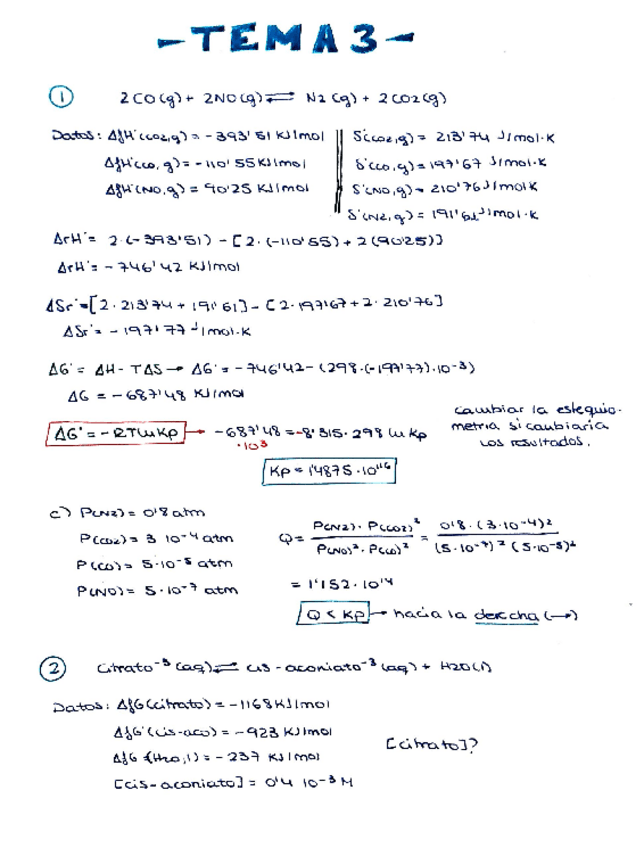 -TEMA3-
1 2CO(g) + 2NO(g) ⇌ N2(g) + 2CO2(g)
Datos: ΔfH°(CO2,g) = -393'51 KJ/mol S°(CO2,g) = 213'74 J/mol·K
ΔfH°(CO,g) = -110'55 KJ/mol S°(CO,g) = 197'67 J/mol·K
ΔfH°(NO,g) = 90'25 KJ/mol S°(NO,g) = 210'76 J/mol·K
S°(N2,g) = 191'61 J/mol·K
ΔrH° = 2·(-393'51) - [2·(-110'55) + 2(90'25)]
ΔrH° = -746'42 KJ/mol
ΔSr° = [2·213'74 + 191'61] - [2·197'67 + 2·210'76]
ΔSr° = -197'77 J/mol·K
ΔG° = ΔH - TΔS → ΔG° = -746'42 - (298·(-197'77)·10⁻³)
ΔG = -687'48 KJ/mol
cambiar la estequio-
metria si cambiaria
los resultados.
ΔG° = -RTlnKp → -687'48 ·10³ = -8'315·298 ln Kp
Kp = 1'4875·10¹¹⁶
c) P(N2) = 0'8 atm
P(CO2) = 3 10⁻⁴ atm
P(CO) = 5·10⁻⁵ atm
P(NO) = 5·10⁻⁷ atm
Q = P(N2)·P(CO2)² / P(NO)²·P(CO)² = 0'8·(3·10⁻⁴)² / (5·10⁻⁷)²(5·10⁻⁵)²
= 1'152·10¹⁴
Q < Kp → hacia la derecha (→)
2 Citrato⁻³(aq) ⇌ cis-aconiato⁻³(aq) + H2O(l)
Datos: ΔfG(citrato) = -1168 KJ/mol
ΔfG°(cis-aco) = -923 KJ/mol
ΔfG°(H2O,l) = -237 KJ/mol
[citrato]?
[cis-aconiato] = 0'4 10⁻³ M